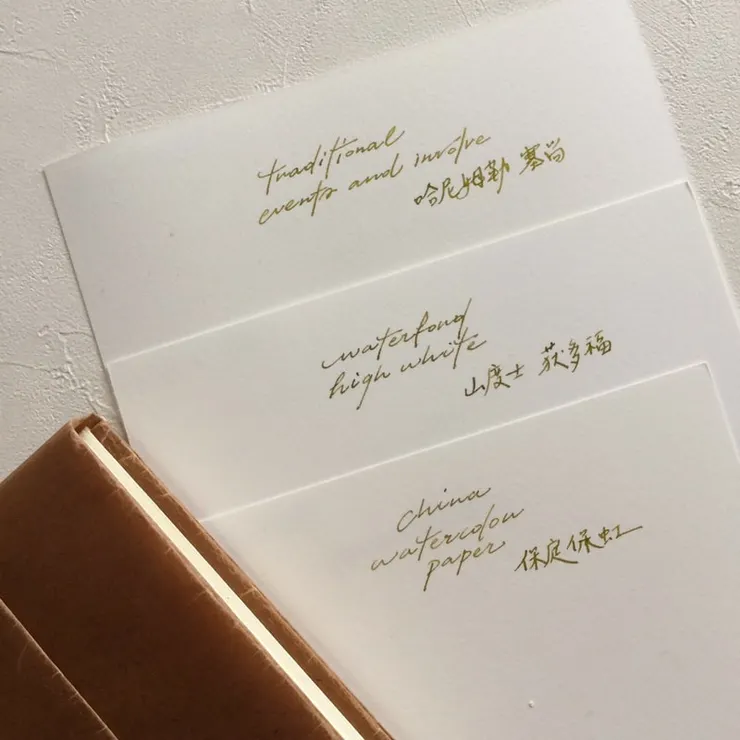 traditional
events and involve
哈尼姆勒 塞尚
waterford
high white
山度士 获多福
china
watercolour
paper
保定保虹